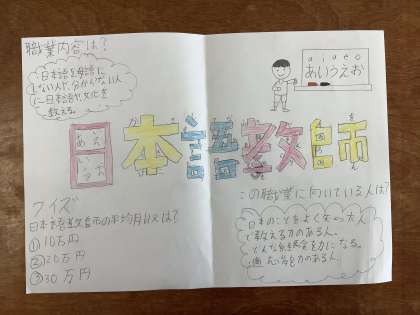 職業内容は?
日本語を母語に
しない人や、分からない人
に日本語や文化を
教える。
aiueo
あいうえお
日本語教師
クイズ
日本語教師の平均月収は?
①10万円
②20万円
③30万円
この職業に向いている人は?
日本のことをよく
教える力のある人。
どんな経験も力になる。
力のある人。